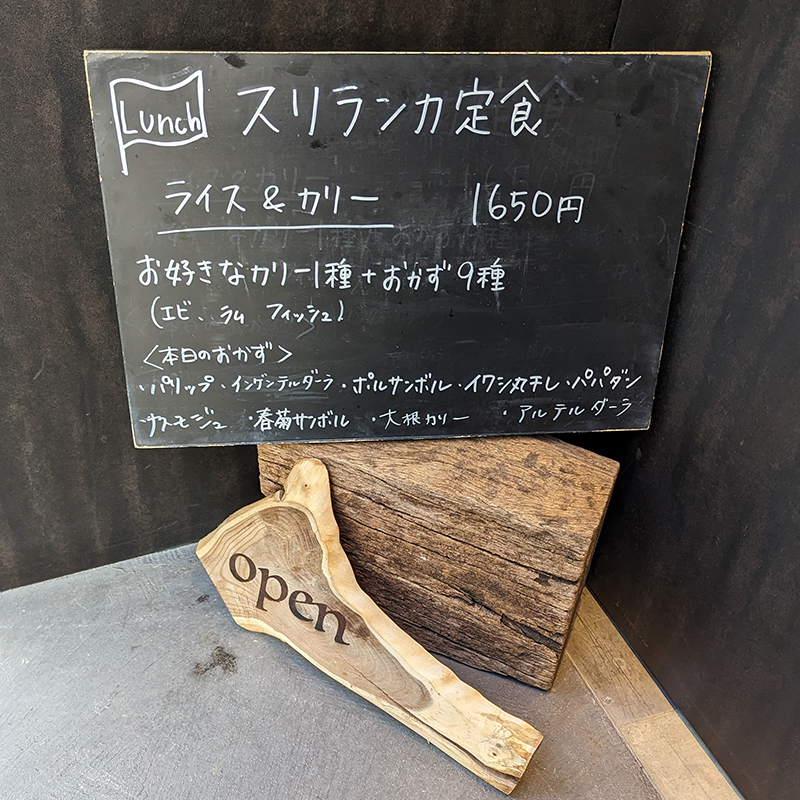 Lunch スリランカ定食
ライス & カリー 1650円
お好きなカリー1種 + おかず9種
(エビ、ラム フィッシュ)
<本日のおかず>
・パリップ・インゲンテルダーラ・ポルサンボル・イワシ丸干し・パパダン
ナスモジュ ・春菊サンボル ・大根カリー ・アルテルダーラ
open